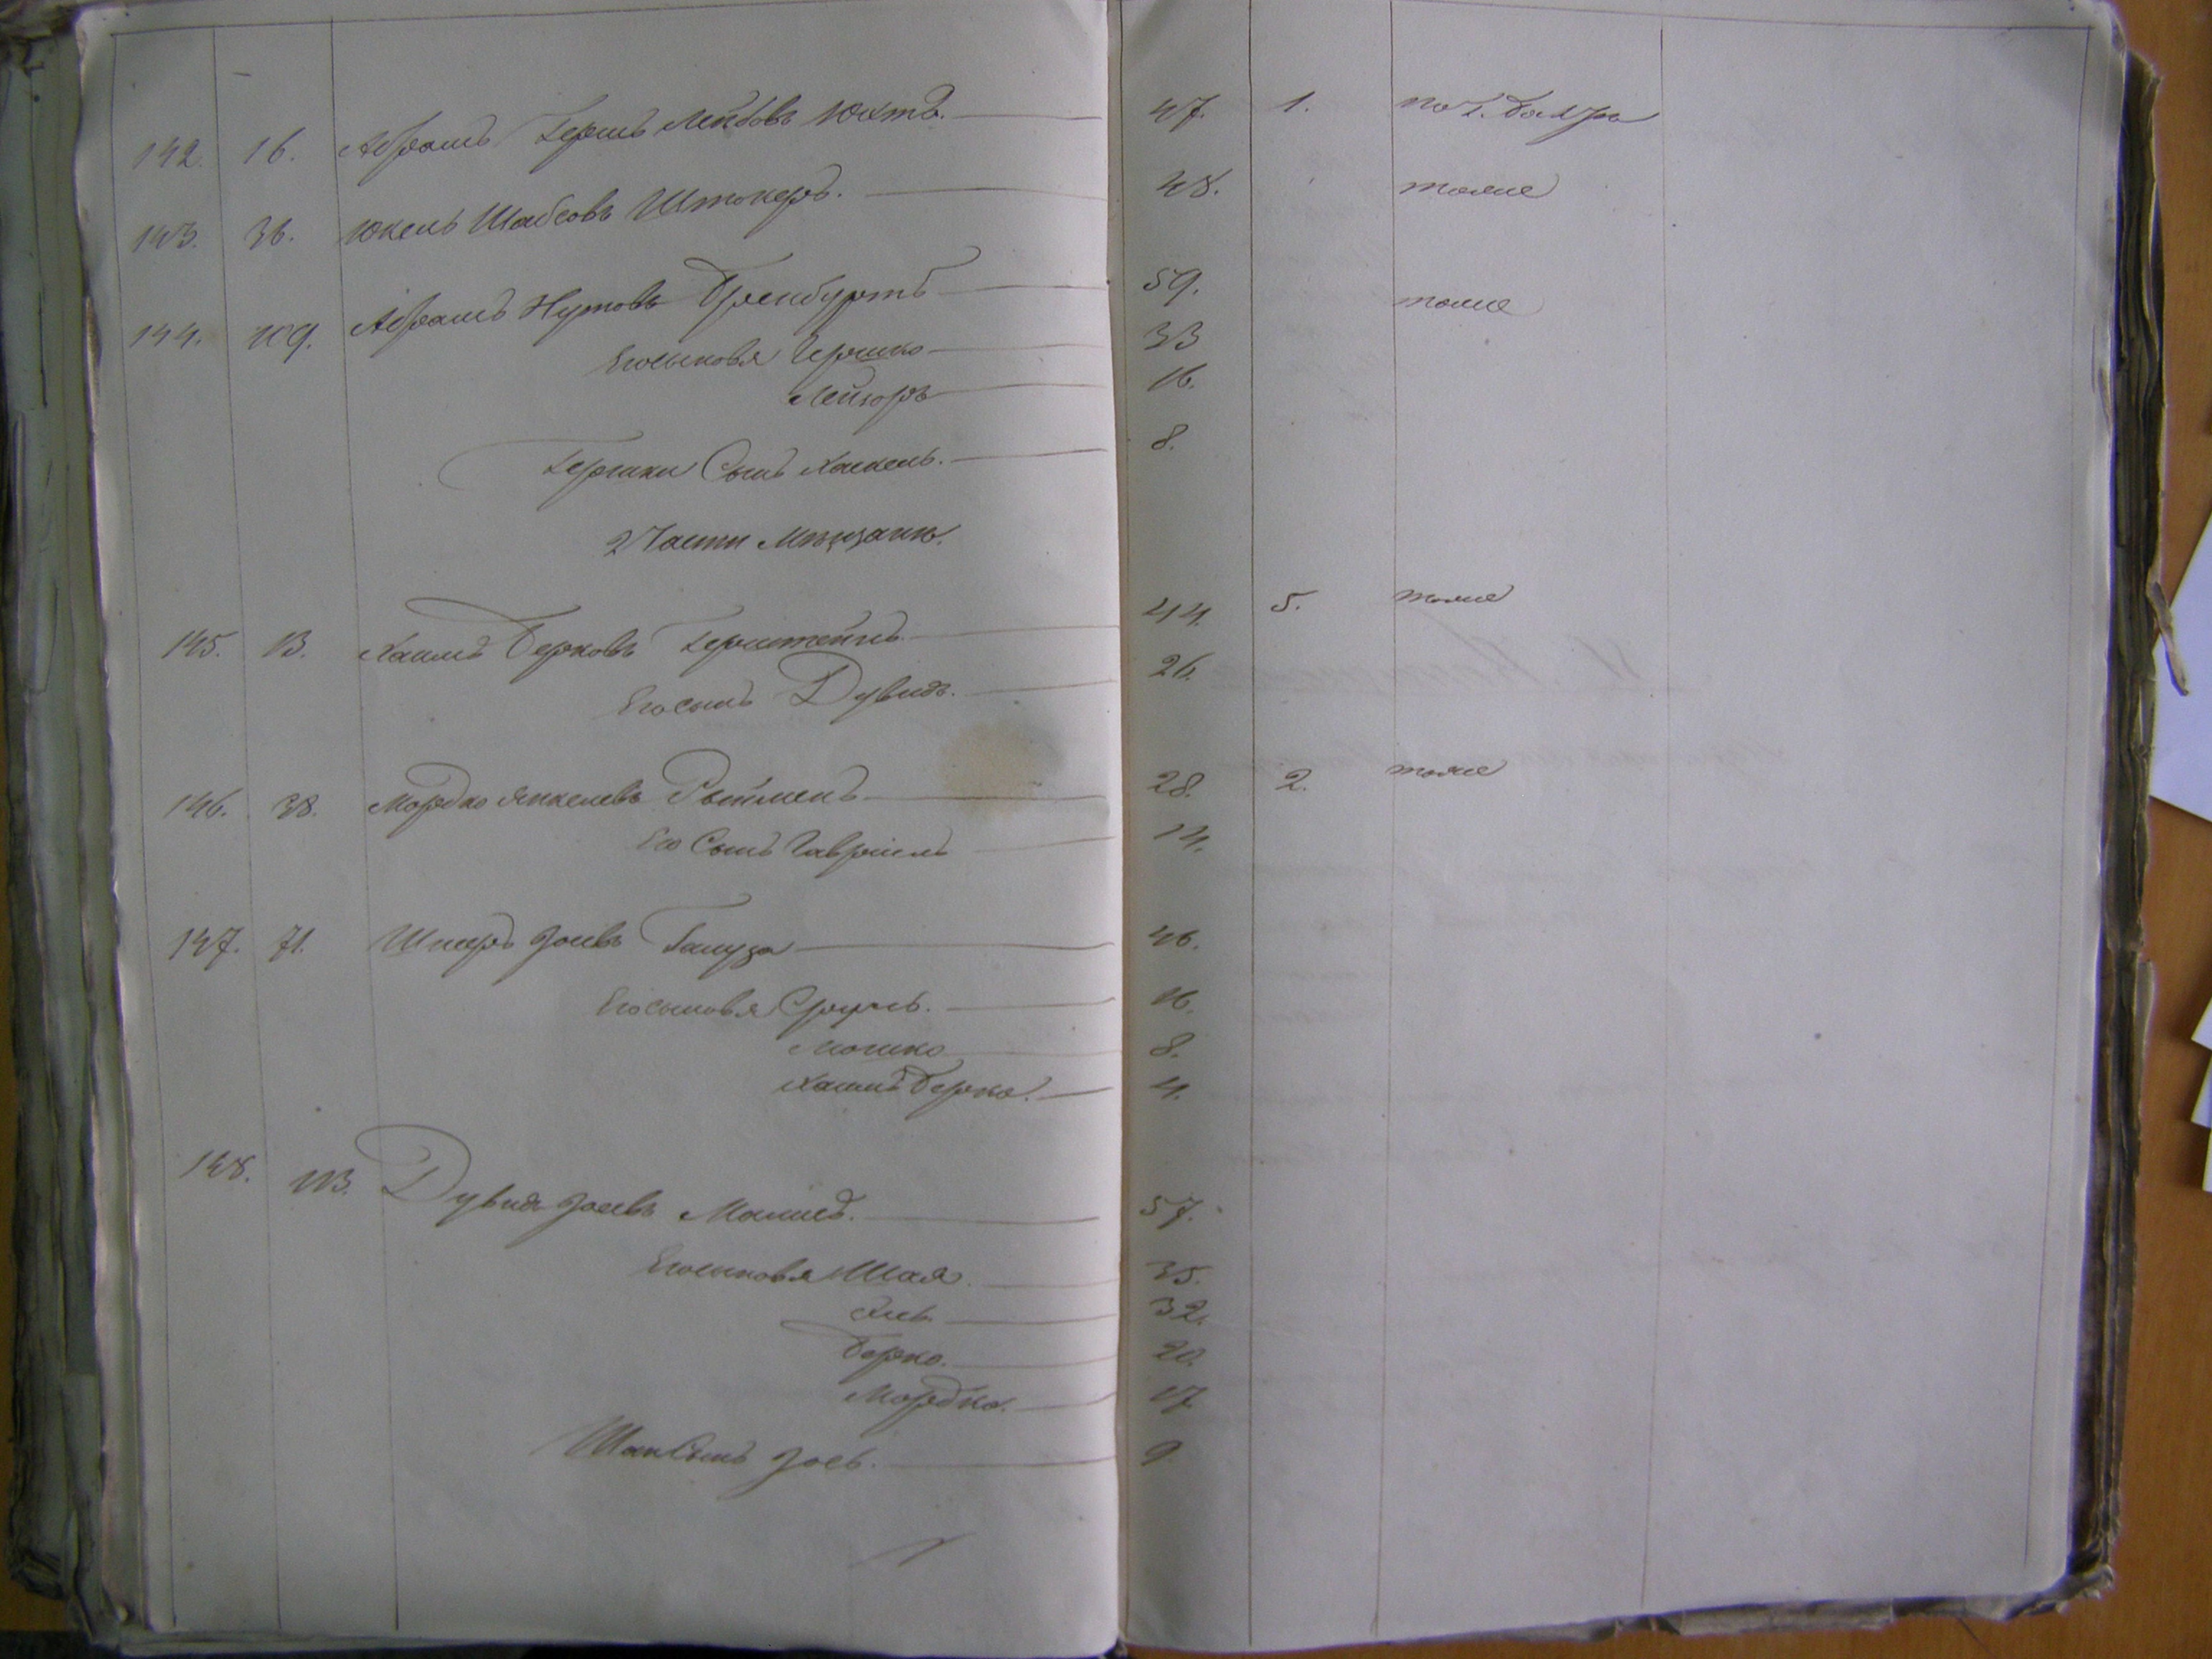 142. 16. Абрамъ Гершъ Лейбовъ Юхтъ. 47. 1. по г. Балтѣ
143. 36. Юкель Шабсовъ Штокеръ. 48. тоже
144. 109. Абрамъ Нутовъ 59. тоже
Его сыновья Гершко 33
Лейзоръ 16.
Гершки Сынъ Хаскель. 8.
2 Части Мѣщане.
145. 13. Хаимъ Берковъ Герштейнъ. 44. 5. тоже
Его сынъ Дувидъ. 26.
146. 38. Мордко Янкелевъ Ройтменъ 28. 2. тоже
Его Сынъ Гавріилъ 14.
147. 71. Шмеръ Зоевъ 46.
Его сыновья Сруль. 16.
Мошко 8.
Хаимъ Берко. 4.
148. 113. Дувидъ Зоевъ Малисъ. 57.
Его сыновья Шая. 35.
32.
Берко. 20.
Мордко. 17
Шаи Сынъ Зось. 9